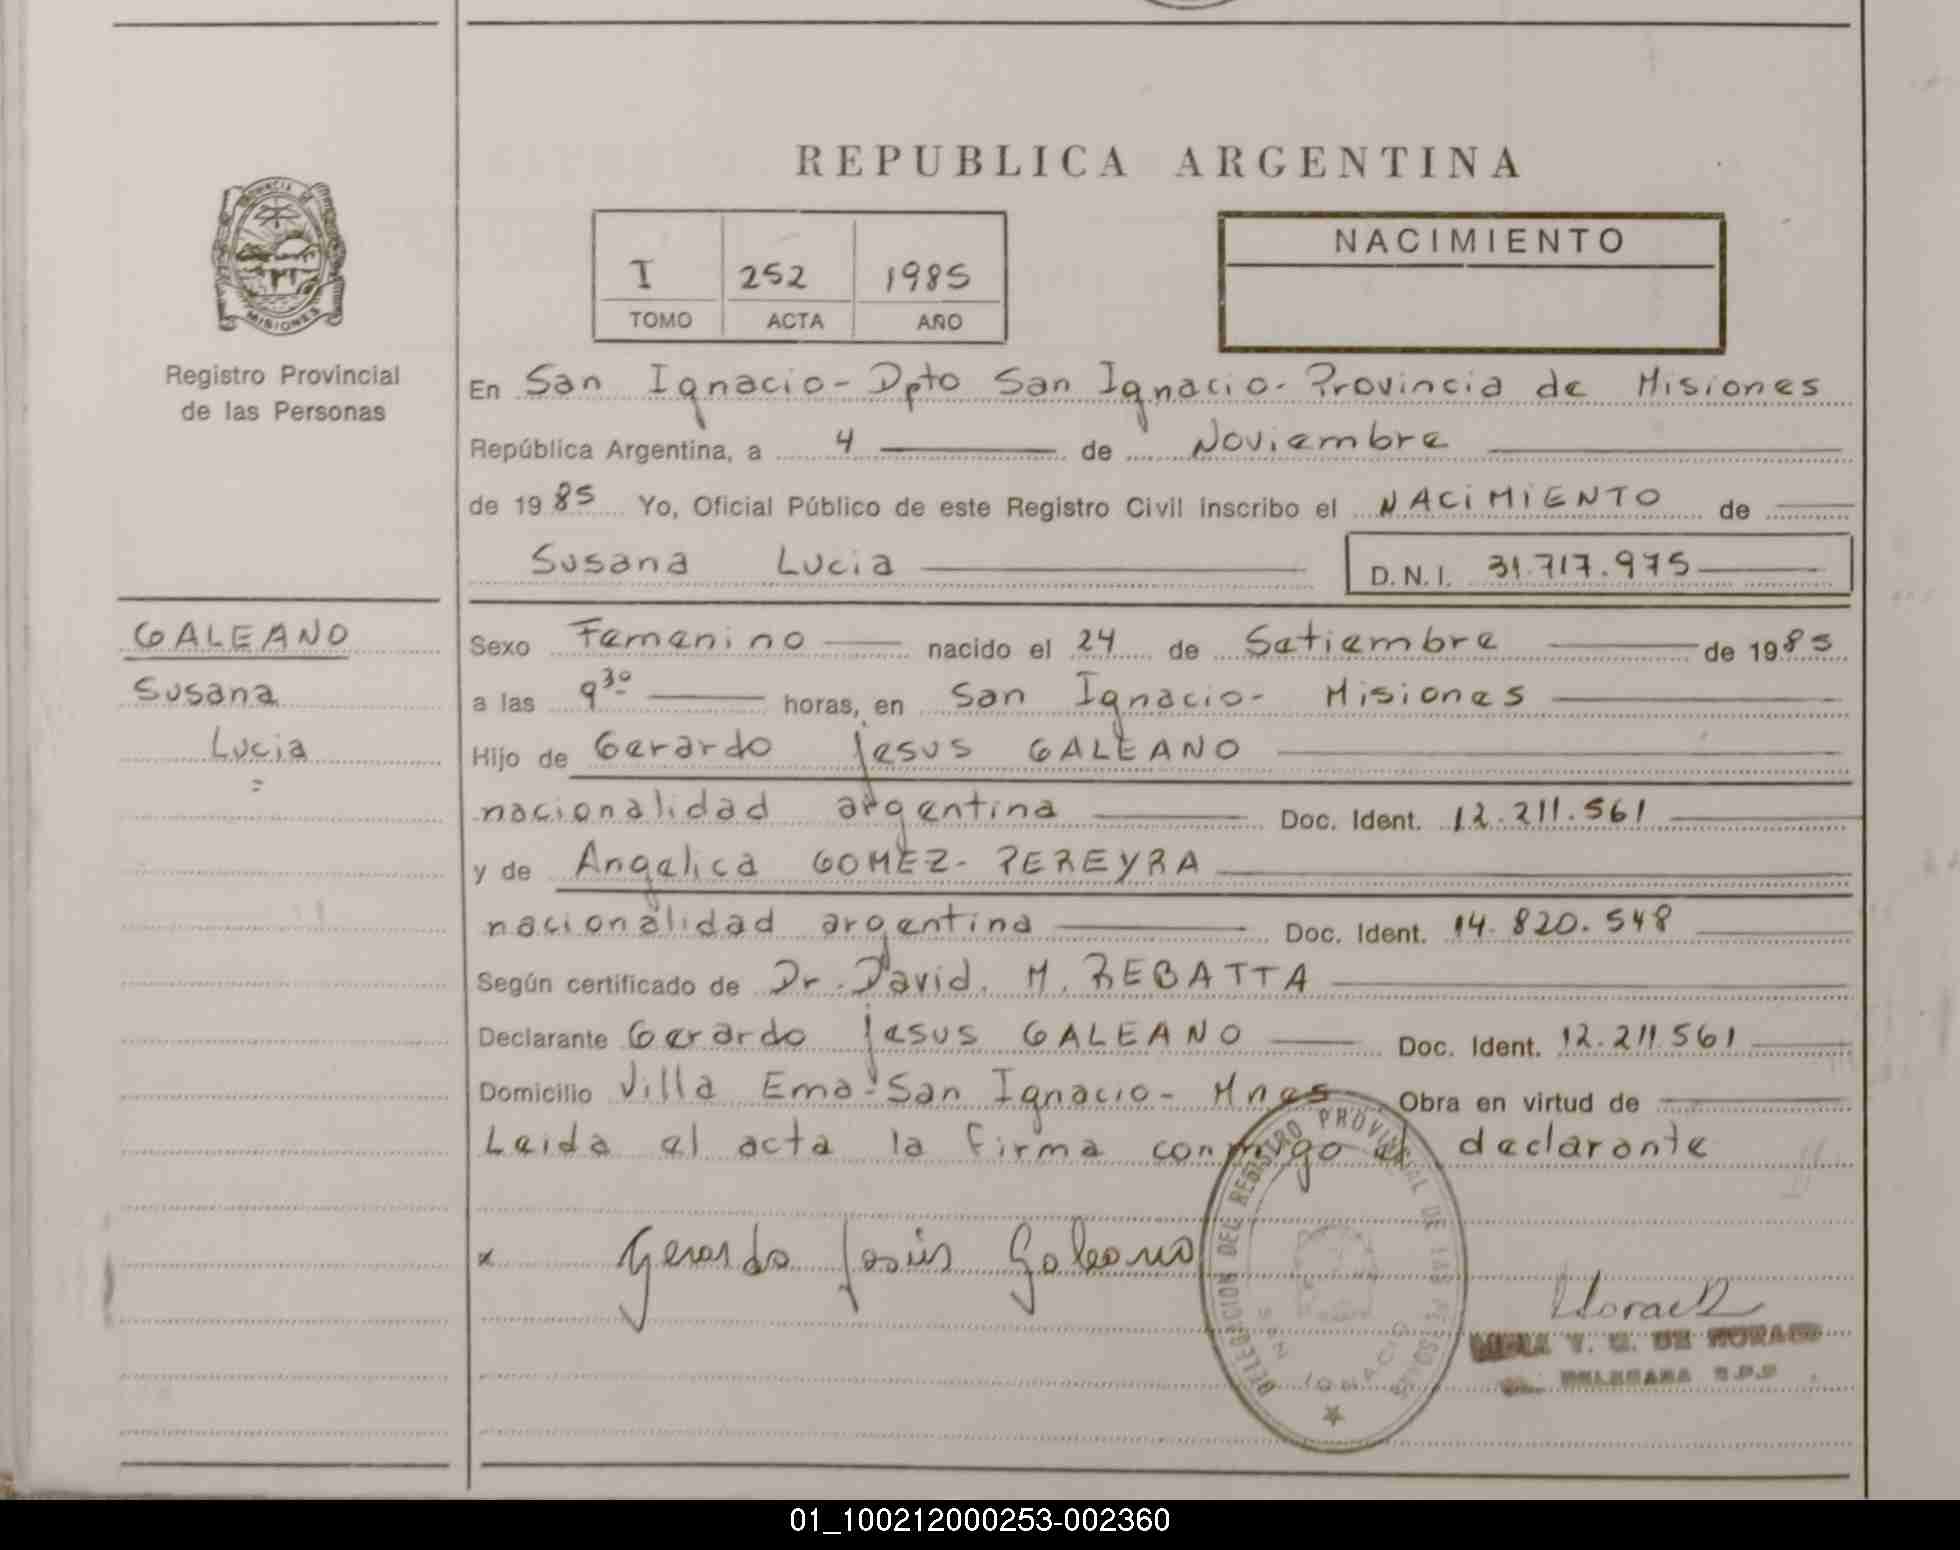 REPUBLICA ARGENTINA
PROVINCIA DE
MISIONES
Registro Provincial
de las Personas
I 252 1985
TOMO ACTA AÑO
NACIMIENTO
En San Ignacio - Dpto San Ignacio - Provincia de Misiones
República Argentina, a 4 de Noviembre
de 1985 Yo, Oficial Público de este Registro Civil inscribo el NACIMIENTO de
Susana Lucia D.N.I. 31.717.975
GALEANO
Susana
Lucia
=
Sexo Femenino nacido el 24 de Setiembre de 1985
a las 9 30 horas, en San Ignacio - Misiones
Hijo de Gerardo jesus GALEANO
nacionalidad argentina Doc. Ident. 12.211.561
y de Angelica GOMEZ - PEREYRA
nacionalidad argentina Doc. Ident. 14.820.548
Según certificado de Dr. David. M. REBATTA
Declarante Gerardo jesus GALEANO Doc. Ident. 12.211.561
Domicilio Villa Ema - San Ignacio - Mnes Obra en virtud de
Leida el acta la firma conmigo el declarante
x Gerardo Jesús Galeano
DELEGACION DEL REGISTRO PROVINCIAL DE LAS PERSONAS
SAN IGNACIO
DE MORAES
01_100212000253-002360